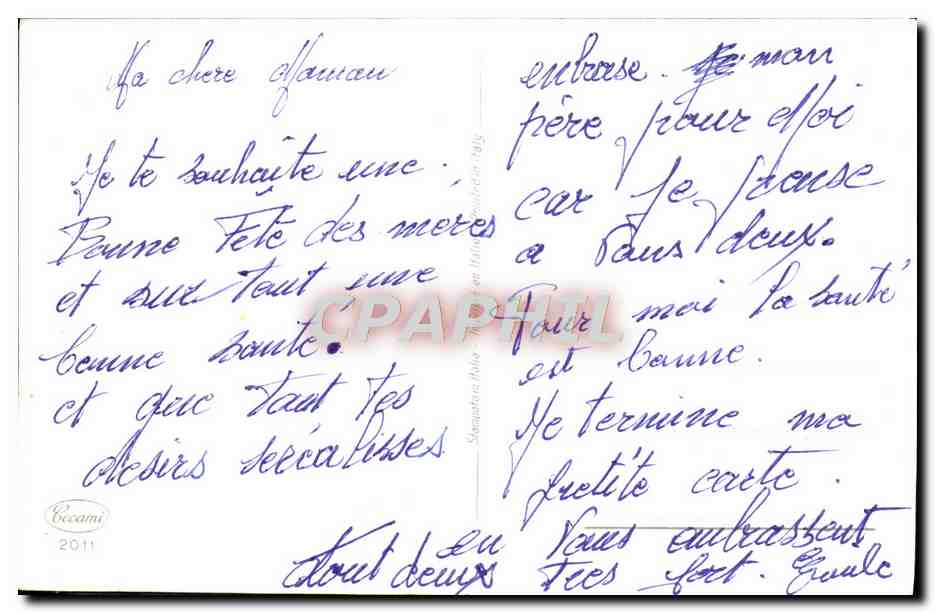 Ma chere Maman
Je te souhaite une
Bonne Fête des meres
et sur tout une
bonne santé.
et que tout tes
desirs serealisses
enbrase. mon
père pour Moi
car Je panse
a Vous deux.
Pour moi la santé
est bonne.
Je termine ma
petite carte.
en Vous enbrassent
tout deux Tres fort.
Cecami
2011
Stampato in Italia
CPAPHIL